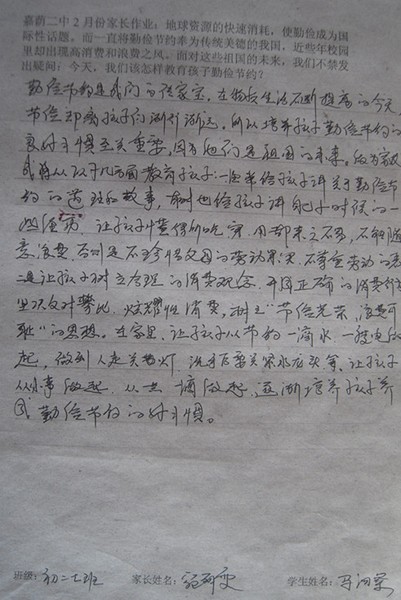 嘉荫二中2月份家长作业:地球资源的快速消耗,使勤俭成为国
际性话题。而一直将勤俭节约奉为传统美德的我国,近些年校园
里却出现高消费和浪费之风。面对这些祖国的未来,我们不禁发
出疑问:今天,我们该怎样教育孩子勤俭节约?
勤俭节约是我们的传家宝。在物质生活不断提高的今天,
节俭却离孩子们渐行渐远。所以培养孩子勤俭节约的
良好习惯至关重要,因为他们是祖国的未来。做为家长
我将从以下几方面教育孩子:一是给孩子讲关于勤俭节
约的道理和故事,有时也给孩子讲自己小时候的一
些经历,让孩子懂得所吃穿用都来之不易,不能随
意浪费,否则是不珍惜父母的劳动果实,不尊重劳动的
二是让孩子树立合理的消费观念,
坚决反对攀比,炫耀性消费,树立“节俭光荣,浪费可
耻”的思想。在家里,让孩子从节约一滴水,一度电做
起,做到人走关灯,洗手后要关紧水龙头等,让孩子
从小事做起,从点滴做起,逐渐培养孩子养
成勤俭节约的好习惯。
班级:初二七班 家长姓名: 学生姓名: